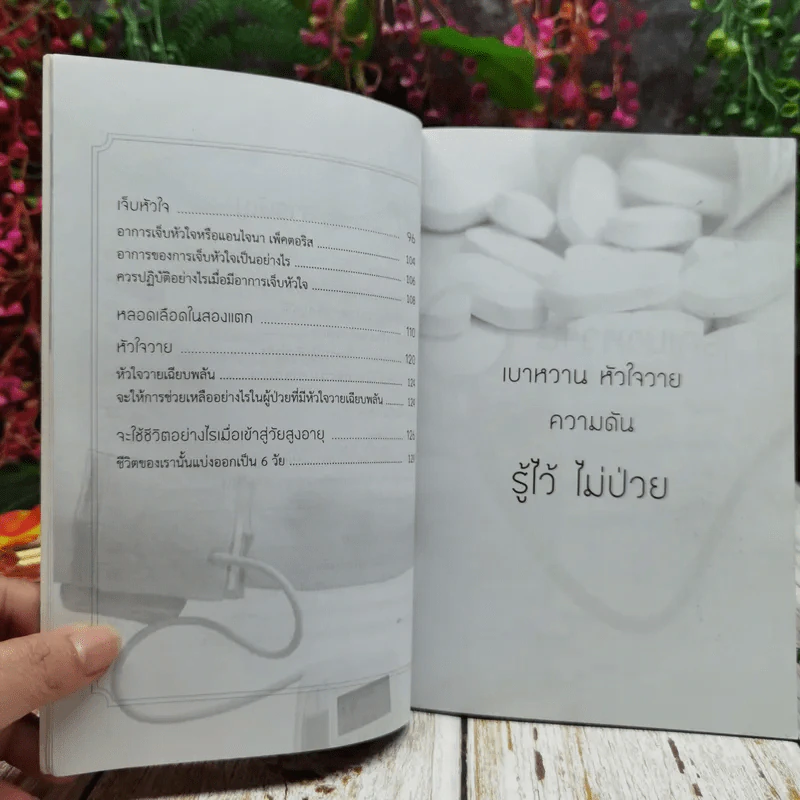 เจ็บหัวใจ ........ 96
อาการเจ็บหัวใจหรือแอนไจนา เพ็คตอริส ........ 104
อาการของการเจ็บหัวใจเป็นอย่างไร ........ 106
ควรปฏิบัติอย่างไรเมื่อมีอาการเจ็บหัวใจ ........ 108
หลอดเลือดในสองแตก ........ 110
หัวใจวาย ........ 120
หัวใจวายเฉียบพลัน ........ 124
จะให้การช่วยเหลืออย่างไรในผู้ป่วยที่มีหัวใจวายเฉียบพลัน ........ 124
จะใช้ชีวิตอย่างไรเมื่อเข้าสู่วัยสูงอายุ ........ 126
ชีวิตของเรานั้นแบ่งออกเป็น 6 วัย ........
เบาหวาน หัวใจวาย
ความดัน
รู้ไว้ ไม่ป่วย